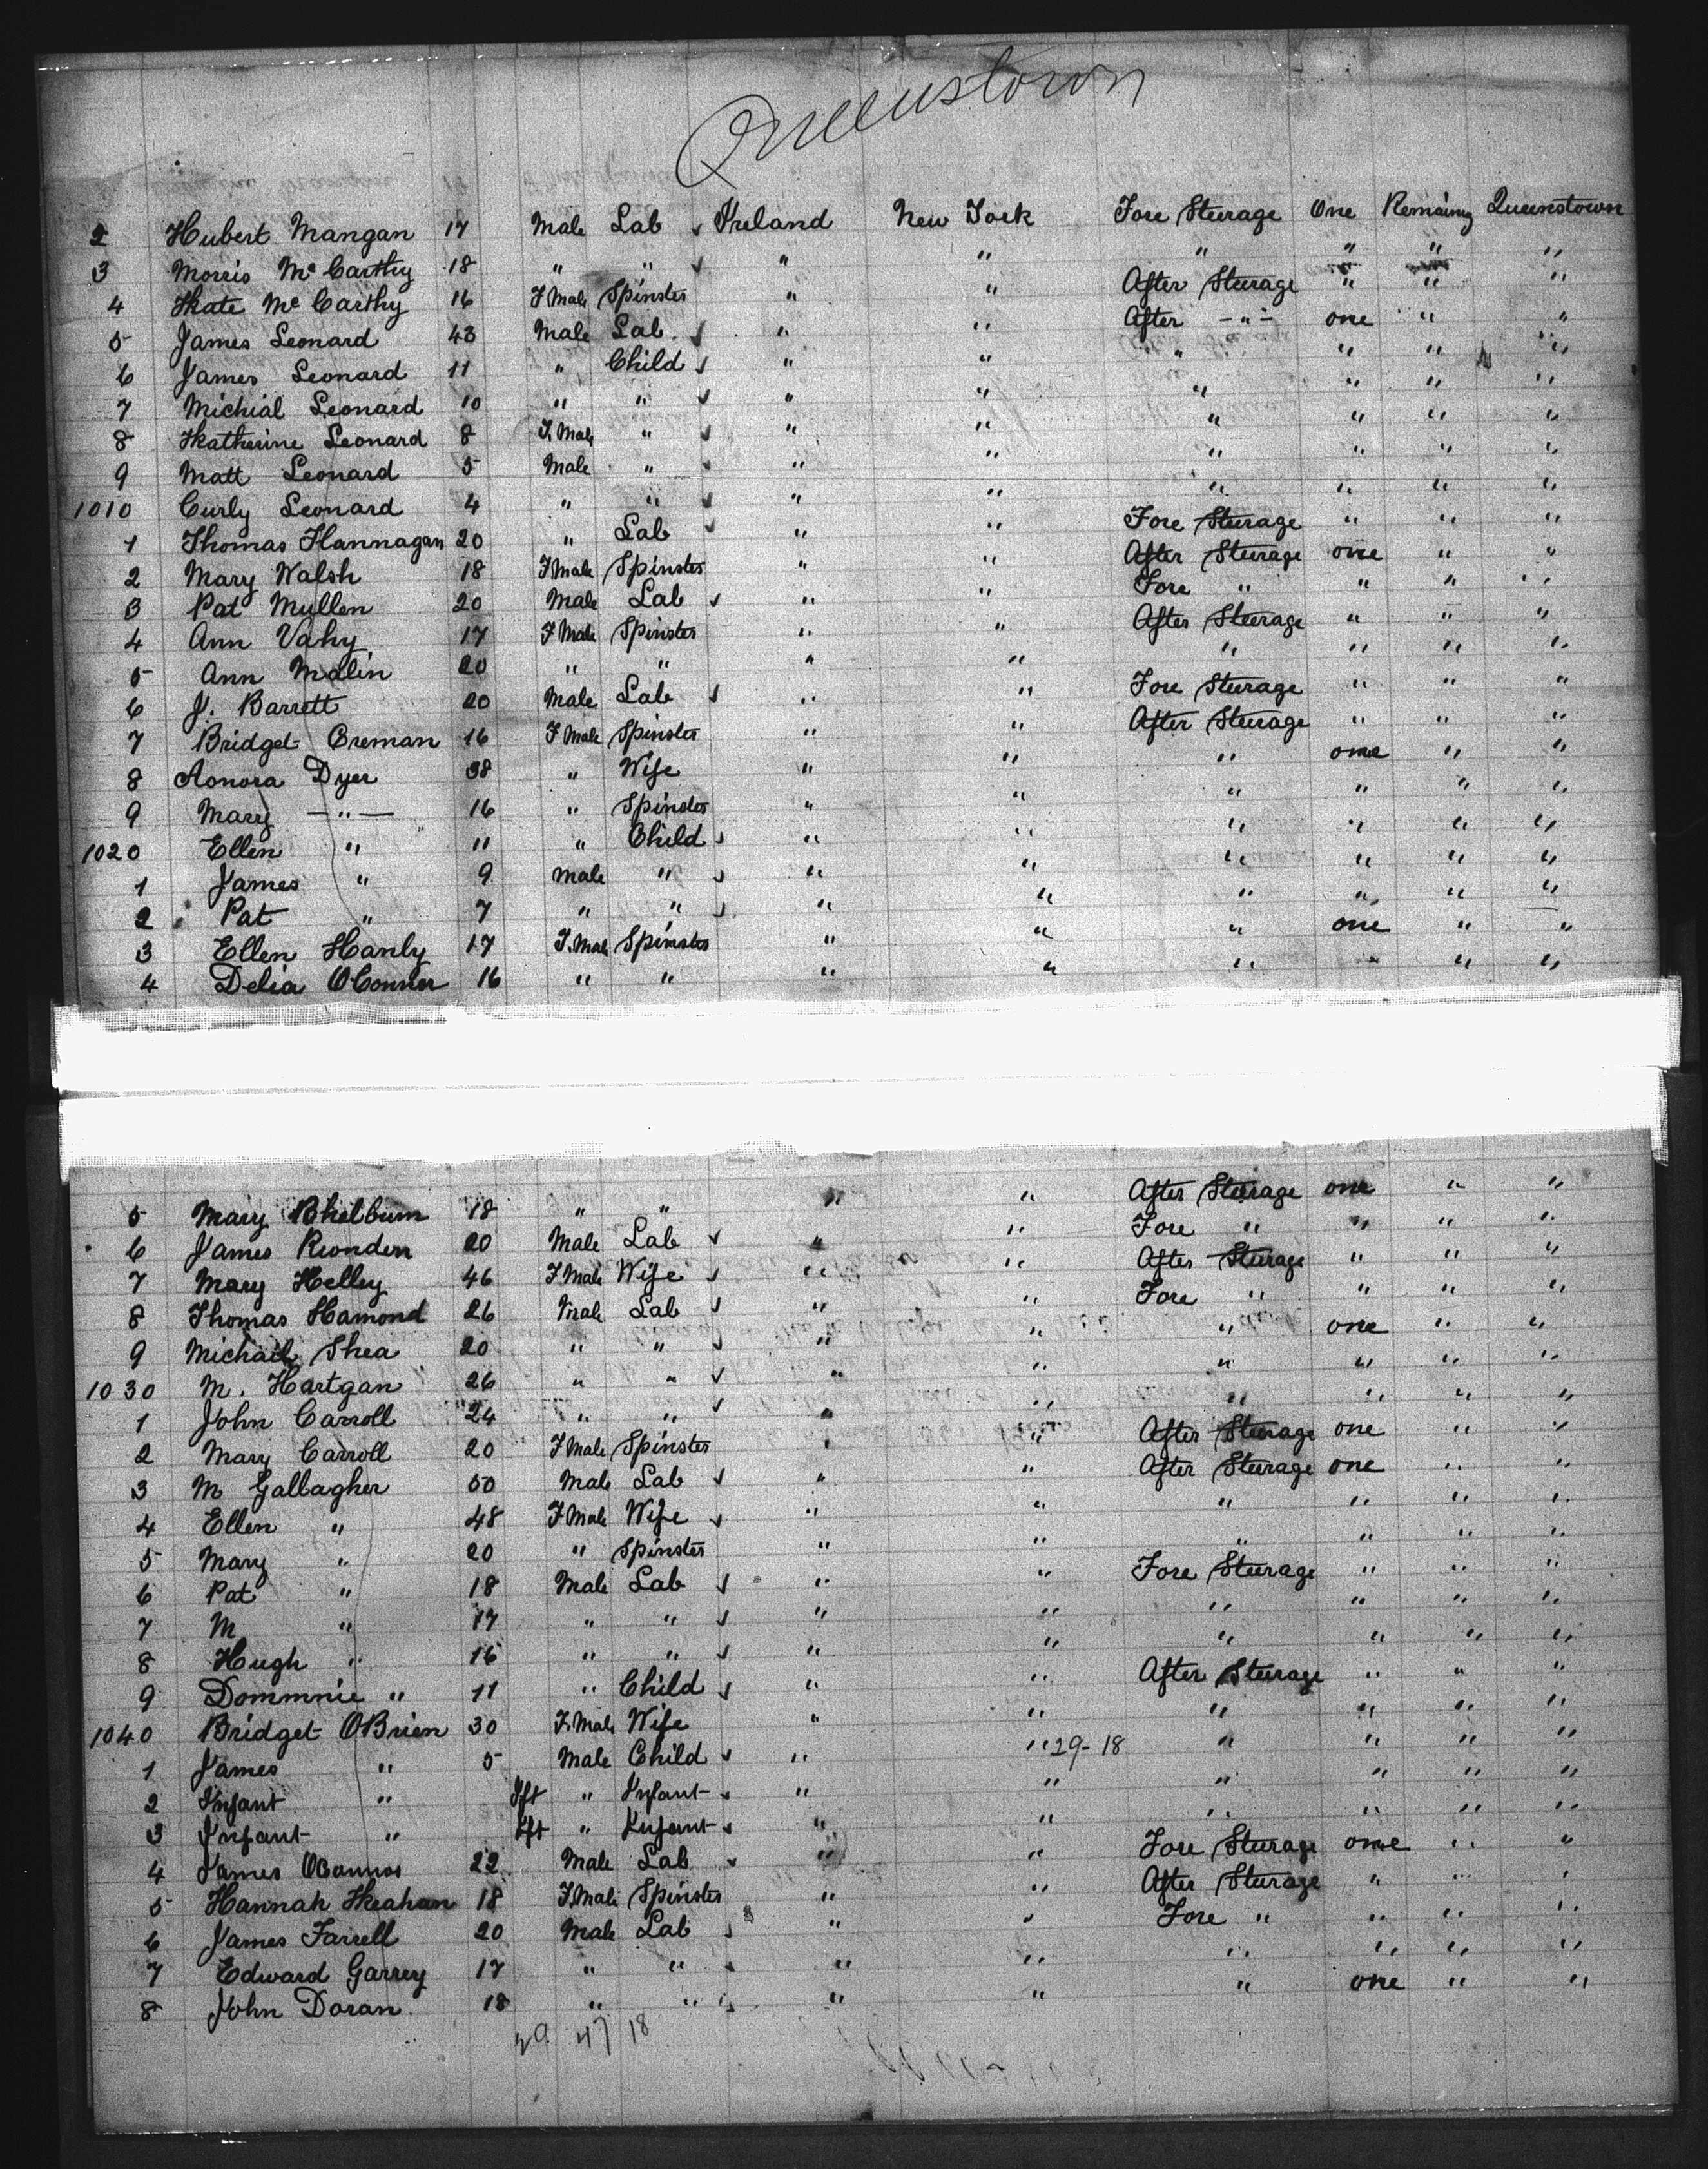 Queenstown
2 Hubert Mangan 17 Male Lab Ireland New York Fore Steerage One Remaing Queenstown
3 Morris Mc Carthy 18 " " " " " " " "
4 Kate Mc Carthy 16 F Male Spinster " " After Steerage " " "
5 James Leonard 43 Male Lab. " " After -"- one " "
6 James Leonard 11 " Child " " " " " "
7 Michial Leonard 10 " " " " " " " "
8 Katherine Leonard 8 F. Male " " " " " " "
9 Matt Leonard 5 Male " " " " " " "
1010 Curly Leonard 4 " " " " " " " "
1 Thomas Flannagan 20 " Lab " " Fore Steerage " " "
2 Mary Walsh 18 F Male Spinster " " After Steerage one " "
3 Pat Mullen 20 Male Lab " " Fore " " " "
4 Ann Vahy 17 F Male Spinster " " After Steerage " " "
5 Ann Malin 20 " " " " " " " "
6 J. Barrett 20 Male Lab " " Fore Steerage " " "
7 Bridget Creman 16 F Male Spinster " " After Steerage " " "
8 Honora Dyer 38 " Wife " " " one " "
9 Mary -"- 16 " Spinster " " " " " "
1020 Ellen " 11 " Child " " " " " "
1 James " 9 Male " " " " " " "
2 Pat " 7 " " " " " " " "
3 Ellen Hanly 17 F. Male Spinster " " " one " "
4 Delia OConnor 16 " " " " " " "
5 Mary 18 " " " " After Steerage one " "
6 James Rionden 20 Male Lab " " Fore " " " "
7 Mary Kelley 46 F Male Wife " " After Steerage " " "
8 Thomas Hamond 26 Male Lab " " Fore " " " "
9 Michail Shea 20 " " " " " one " "
1030 M. Hartgan 26 " " " " " " " "
1 John Carroll 24 " " " " " " " "
2 Mary Carroll 20 F Male Spinster " " After Steerage one " "
3 M Gallagher 50 Male Lab " " After Steerage one " "
4 Ellen " 48 F Male Wife " " " " " "
5 Mary " 20 " Spinster " " " " " "
6 Pat " 18 Male Lab " " Fore Steerage " " "
7 M " 17 " " " " " " " "
8 Hugh " 16 " " " " " " " "
9 Dommnie " 11 " Child " " After Steerage " " "
1040 Bridget OBrien 30 F. Male Wife " " " " " "
1 James " 5 Male Child " " 29-18 " " " "
2 Infant " Ift " Infant " " " " " "
3 Infant " Ift " Infant " " " " " "
4 James OConnor 22 Male Lab " " Fore Steerage one " "
5 Hannah Keahan 18 F. Male Spinster " " After Steerage " " "
6 James Farrell 20 Male Lab " " Fore " " " "
7 Edward Garrey 17 " " " " " " " "
8 John Doran 18 " " " " " one " "
29 47 18